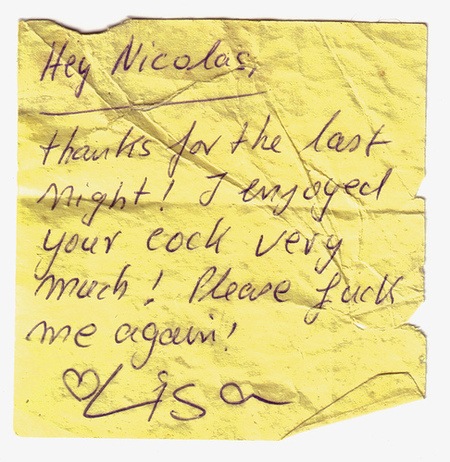 Hey Nicolas,
thanks for the last
night! I enjoyed
your cock very
much! Please fuck
me again!
♡Lisa